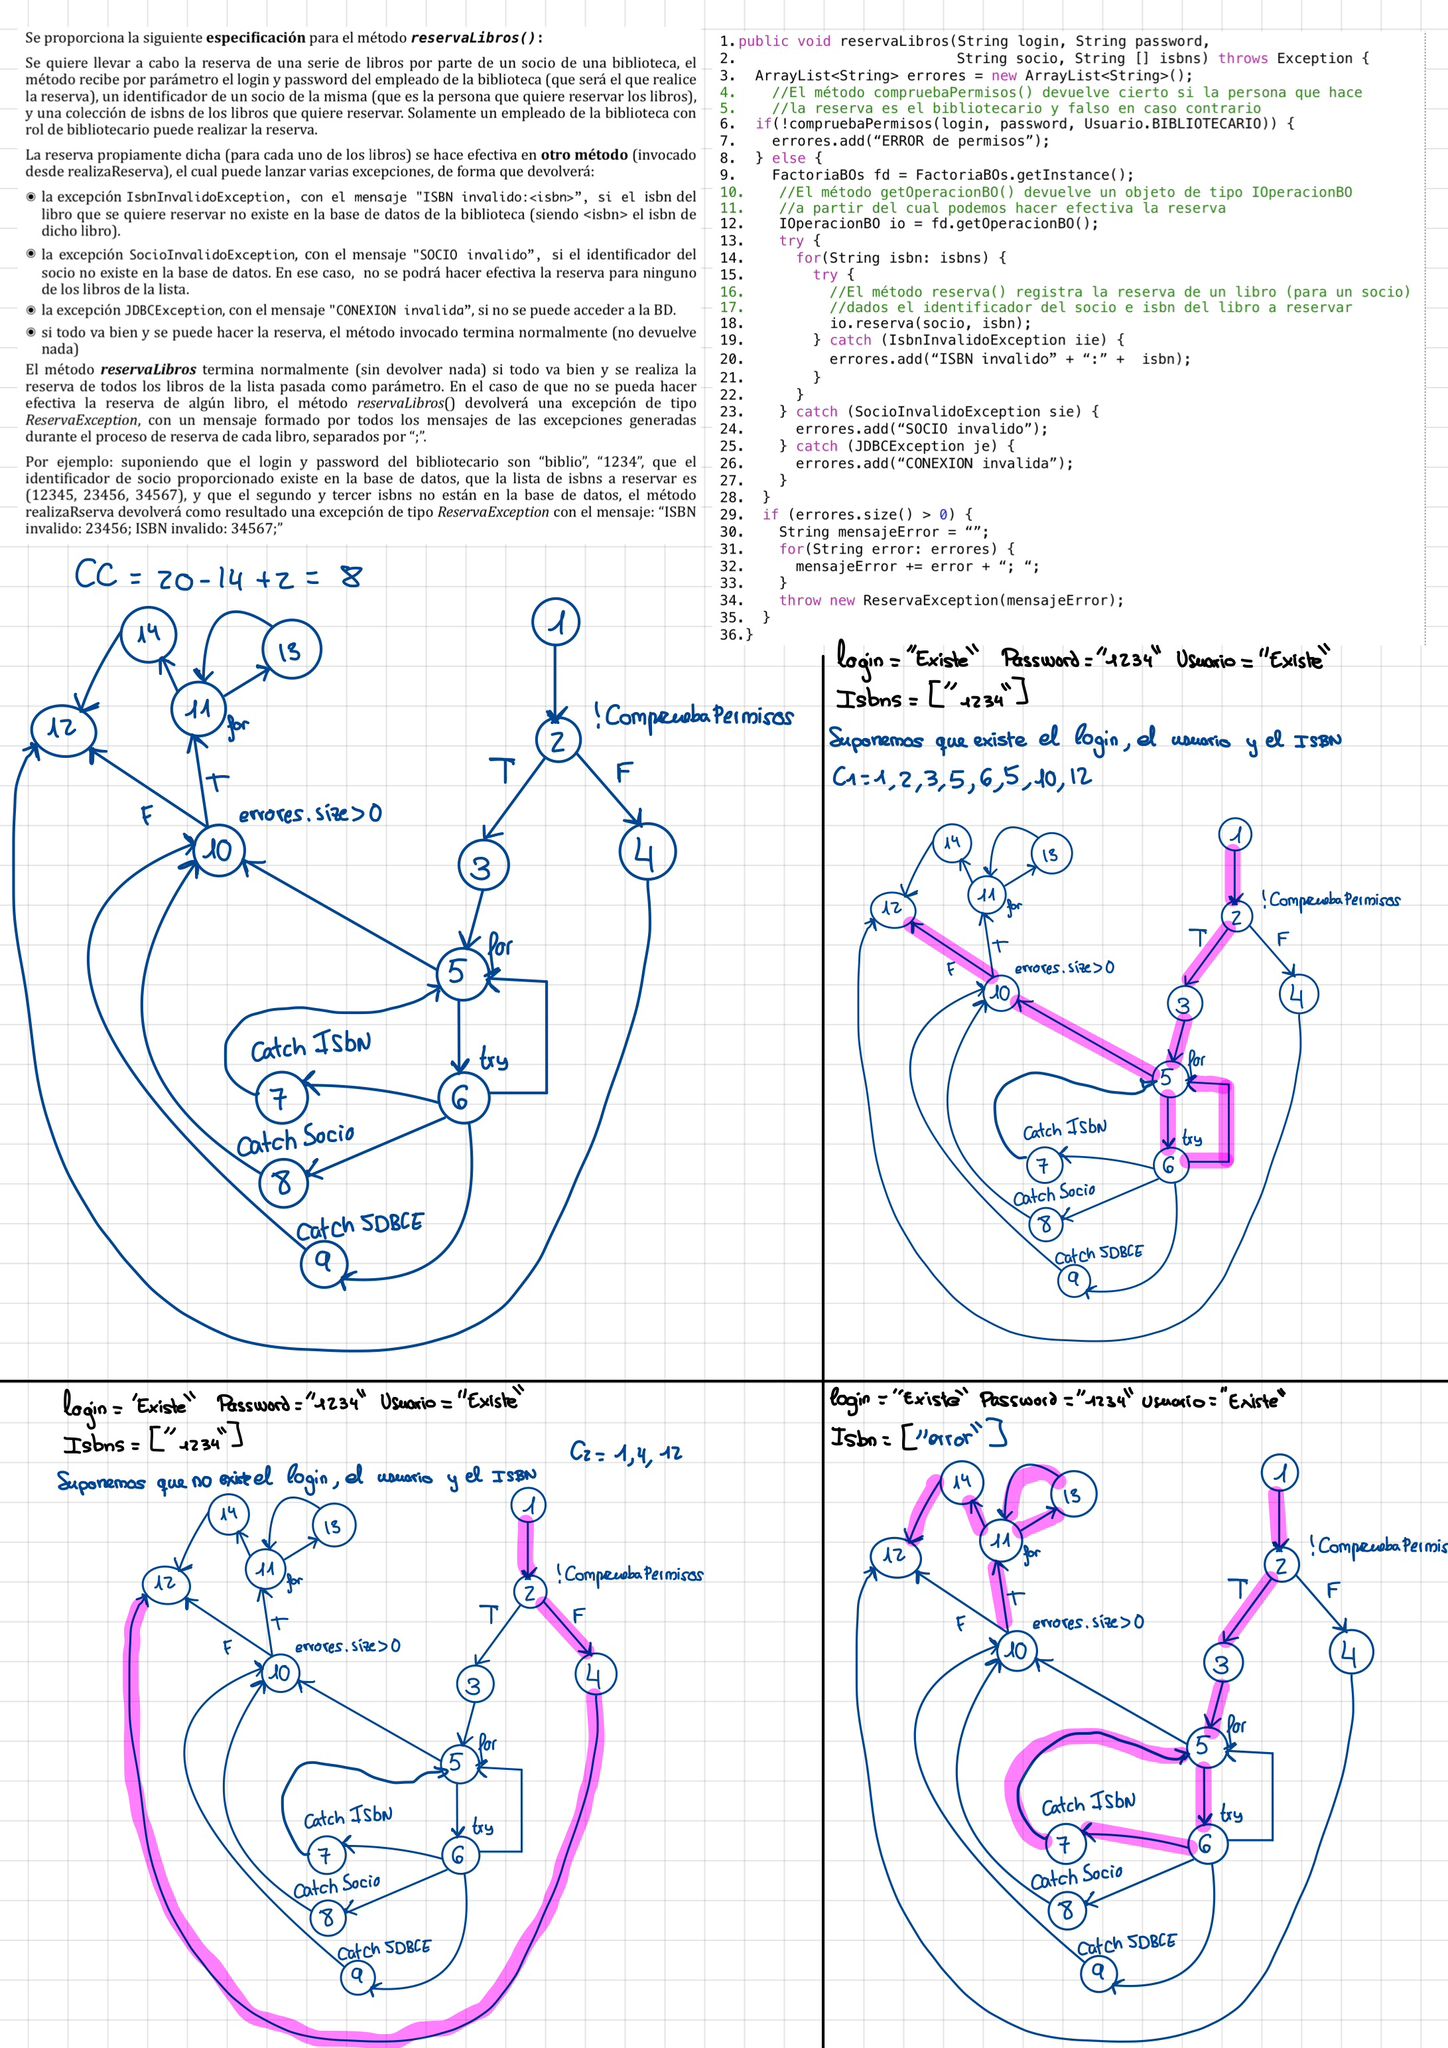 Se proporciona la siguiente especificación para el método reservaLibros():
Se quiere llevar a cabo la reserva de una serie de libros por parte de un socio de una biblioteca, el
método recibe por parámetro el login y password del empleado de la biblioteca (que será el que realice
la reserva), un identificador de un socio de la misma (que es la persona que quiere reservar los libros),
y una colección de isbns de los libros que quiere reservar. Solamente un empleado de la biblioteca con
rol de bibliotecario puede realizar la reserva.
La reserva propiamente dicha (para cada uno de los libros) se hace efectiva en otro método (invocado
desde realizaReserva), el cual puede lanzar varias excepciones, de forma que devolverá:
◉ la excepción IsbnInvalidoException, con el mensaje "ISBN invalido:<isbn>”, si el isbn del
libro que se quiere reservar no existe en la base de datos de la biblioteca (siendo <isbn> el isbn de
dicho libro).
◉ la excepción SocioInvalidoException, con el mensaje "SOCIO invalido”, si el identificador del
socio no existe en la base de datos. En ese caso, no se podrá hacer efectiva la reserva para ninguno
de los libros de la lista.
◉ la excepción JDBCException, con el mensaje "CONEXION invalida”, si no se puede acceder a la BD.
◉ si todo va bien y se puede hacer la reserva, el método invocado termina normalmente (no devuelve
nada)
El método reservaLibros termina normalmente (sin devolver nada) si todo va bien y se realiza la
reserva de todos los libros de la lista pasada como parámetro. En el caso de que no se pueda hacer
efectiva la reserva de algún libro, el método reservaLibros() devolverá una excepción de tipo
ReservaException, con un mensaje formado por todos los mensajes de las excepciones generadas
durante el proceso de reserva de cada libro, separados por “;”.
Por ejemplo: suponiendo que el login y password del bibliotecario son “biblio”, “1234”, que el
identificador de socio proporcionado existe en la base de datos, que la lista de isbns a reservar es
(12345, 23456, 34567), y que el segundo y tercer isbns no están en la base de datos, el método
realizaRserva devolverá como resultado una excepción de tipo ReservaException con el mensaje: “ISBN
invalido: 23456; ISBN invalido: 34567;”
1.public void reservaLibros(String login, String password,
2. String socio, String [] isbns) throws Exception {
3. ArrayList<String> errores = new ArrayList<String>();
4. //El método compruebaPermisos() devuelve cierto si la persona que hace
5. //la reserva es el bibliotecario y falso en caso contrario
6. if(!compruebaPermisos(login, password, Usuario.BIBLIOTECARIO)) {
7. errores.add(“ERROR de permisos”);
8. } else {
9. FactoriaBOs fd = FactoriaBOs.getInstance();
10. //El método getOperacionBO() devuelve un objeto de tipo IOperacionBO
11. //a partir del cual podemos hacer efectiva la reserva
12. IOperacionBO io = fd.getOperacionBO();
13. try {
14. for(String isbn: isbns) {
15. try {
16. //El método reserva() registra la reserva de un libro (para un socio)
17. //dados el identificador del socio e isbn del libro a reservar
18. io.reserva(socio, isbn);
19. } catch (IsbnInvalidoException iie) {
20. errores.add(“ISBN invalido” + “:” + isbn);
21. }
22. }
23. } catch (SocioInvalidoException sie) {
24. errores.add(“SOCIO invalido”);
25. } catch (JDBCException je) {
26. errores.add(“CONEXION invalida”);
27. }
28. }
29. if (errores.size() > 0) {
30. String mensajeError = “”;
31. for(String error: errores) {
32. mensajeError += error + “; “;
33. }
34. throw new ReservaException(mensajeError);
35. }
36.}
CC = 20-14+2 = 8
1
14
13
11
for
12
2
!CompruebaPermisos
T
F
T
F
errores.size>0
10
3
4
5
for
Catch ISBN
try
7
6
Catch Socio
8
Catch JDBCE
9
login = "Existe" Password = "1234" Usuario = "Existe"
Isbns = ["1234"]
Suponemos que existe el login, el usuario y el ISBN
C1 = 1, 2, 3, 5, 6, 5, 10, 12
1
14
13
11
for
12
2
!CompruebaPermisos
T
F
T
F
errores.size>0
10
3
4
5
for
Catch ISBN
try
7
6
Catch Socio
8
Catch JDBCE
9
login = "Existe" Password = "1234" Usuario = "Existe"
Isbns = ["1234"]
C2 = 1, 4, 12
Suponemos que no existe el login, el usuario y el ISBN
1
14
13
11
for
12
2
!CompruebaPermisos
T
F
T
F
errores.size>0
10
3
4
5
for
Catch ISBN
try
7
6
Catch Socio
8
Catch JDBCE
9
login = "Existe" Password = "1234" Usuario = "Existe"
Isbn = ["error"]
1
14
13
11
for
12
2
!CompruebaPermis
T
F
T
F
errores.size>0
10
3
4
5
for
Catch ISBN
try
7
6
Catch Socio
8
Catch JDBCE
9